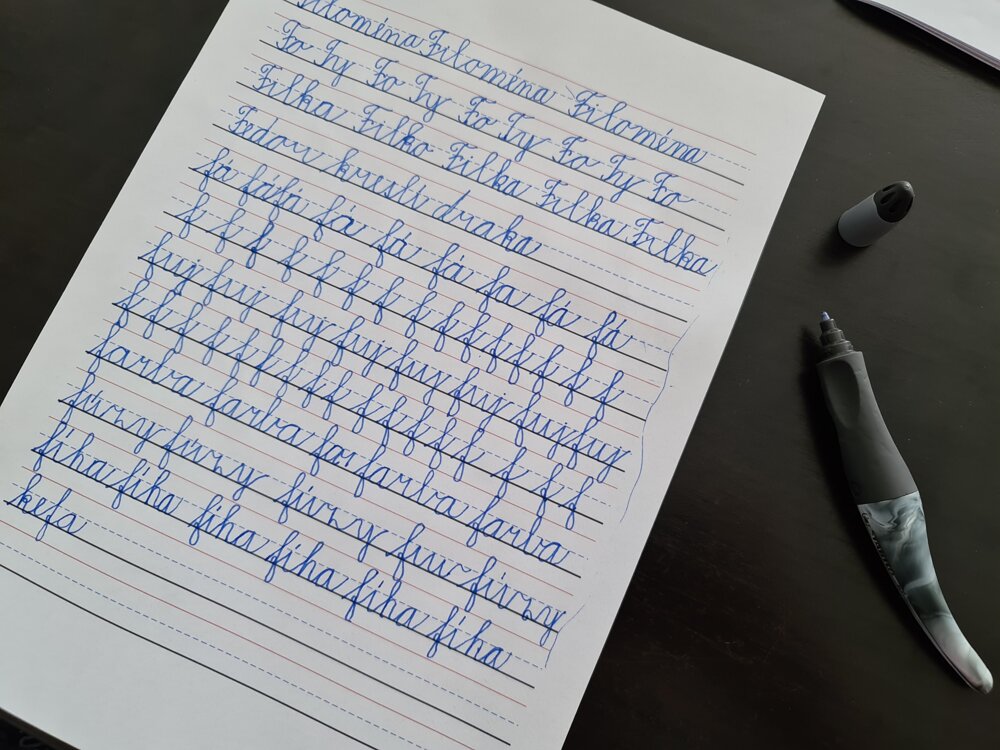 Filoména Filoména Filoména
Fo Fy Fo Fy Fo Fy Fo Fy Fo
Filka Filko Filka Filka Filka
Fedor kreslí draka
fá fáfá fá fá fá fa fá fá
f f f f f f f f f f f f f f f
fuj fuj fuj fuj fuj fuj fujfuj
f f f f f f f f f f f f f f f f
farba farba far farba farba
fúrzy fúrzy fúrzy fur fúrzy
fiha fiha fiha fiha fiha fiha
kefa